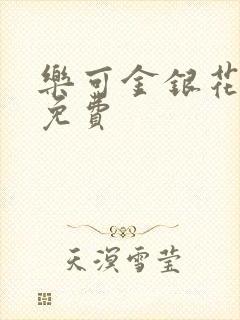 樂可金銀花
免費
天溟雪莹